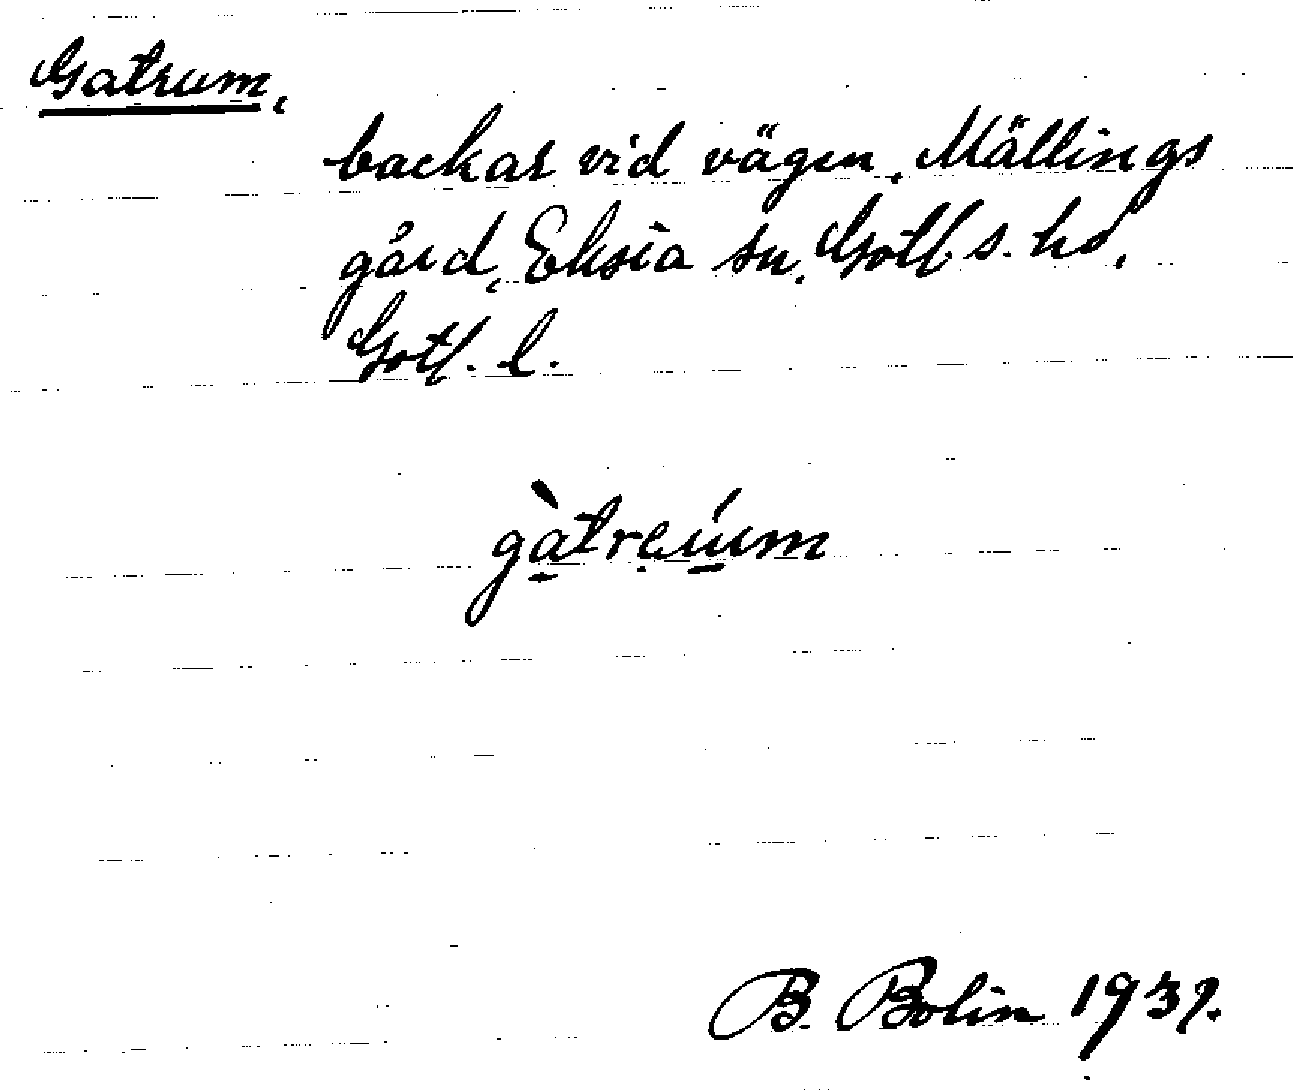 Gatrum,
backar vid vägen, Mällings
gård, Eksta sn, Gotl. s. hd,
Gotl. l.
gàtreúm
B. Bolin 1937.